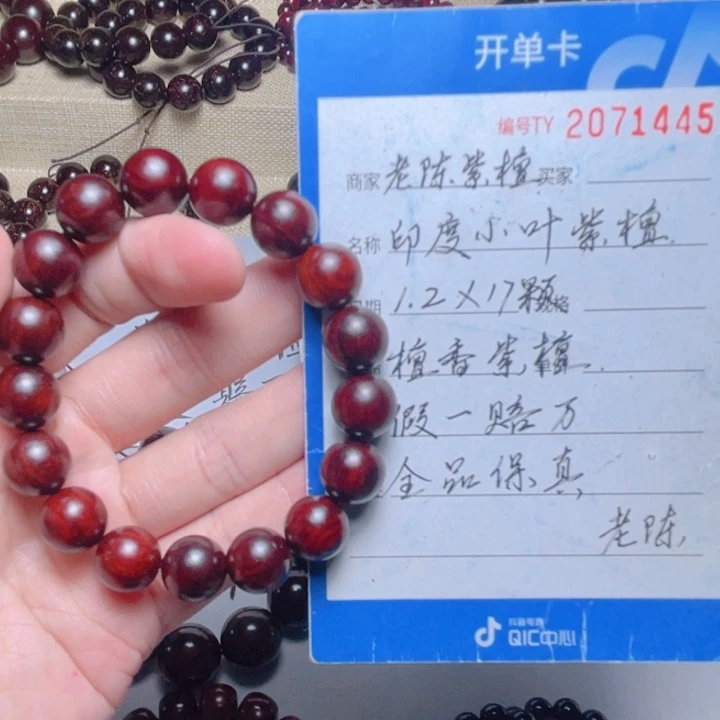 开单卡
编号TY 2071445
商家 老陈紫檀 买家
名称 印度小叶紫檀
日期 1.2×17颗 规格
檀香紫檀
假一赔万
全品保真
老陈
抖音电商
QIC中心